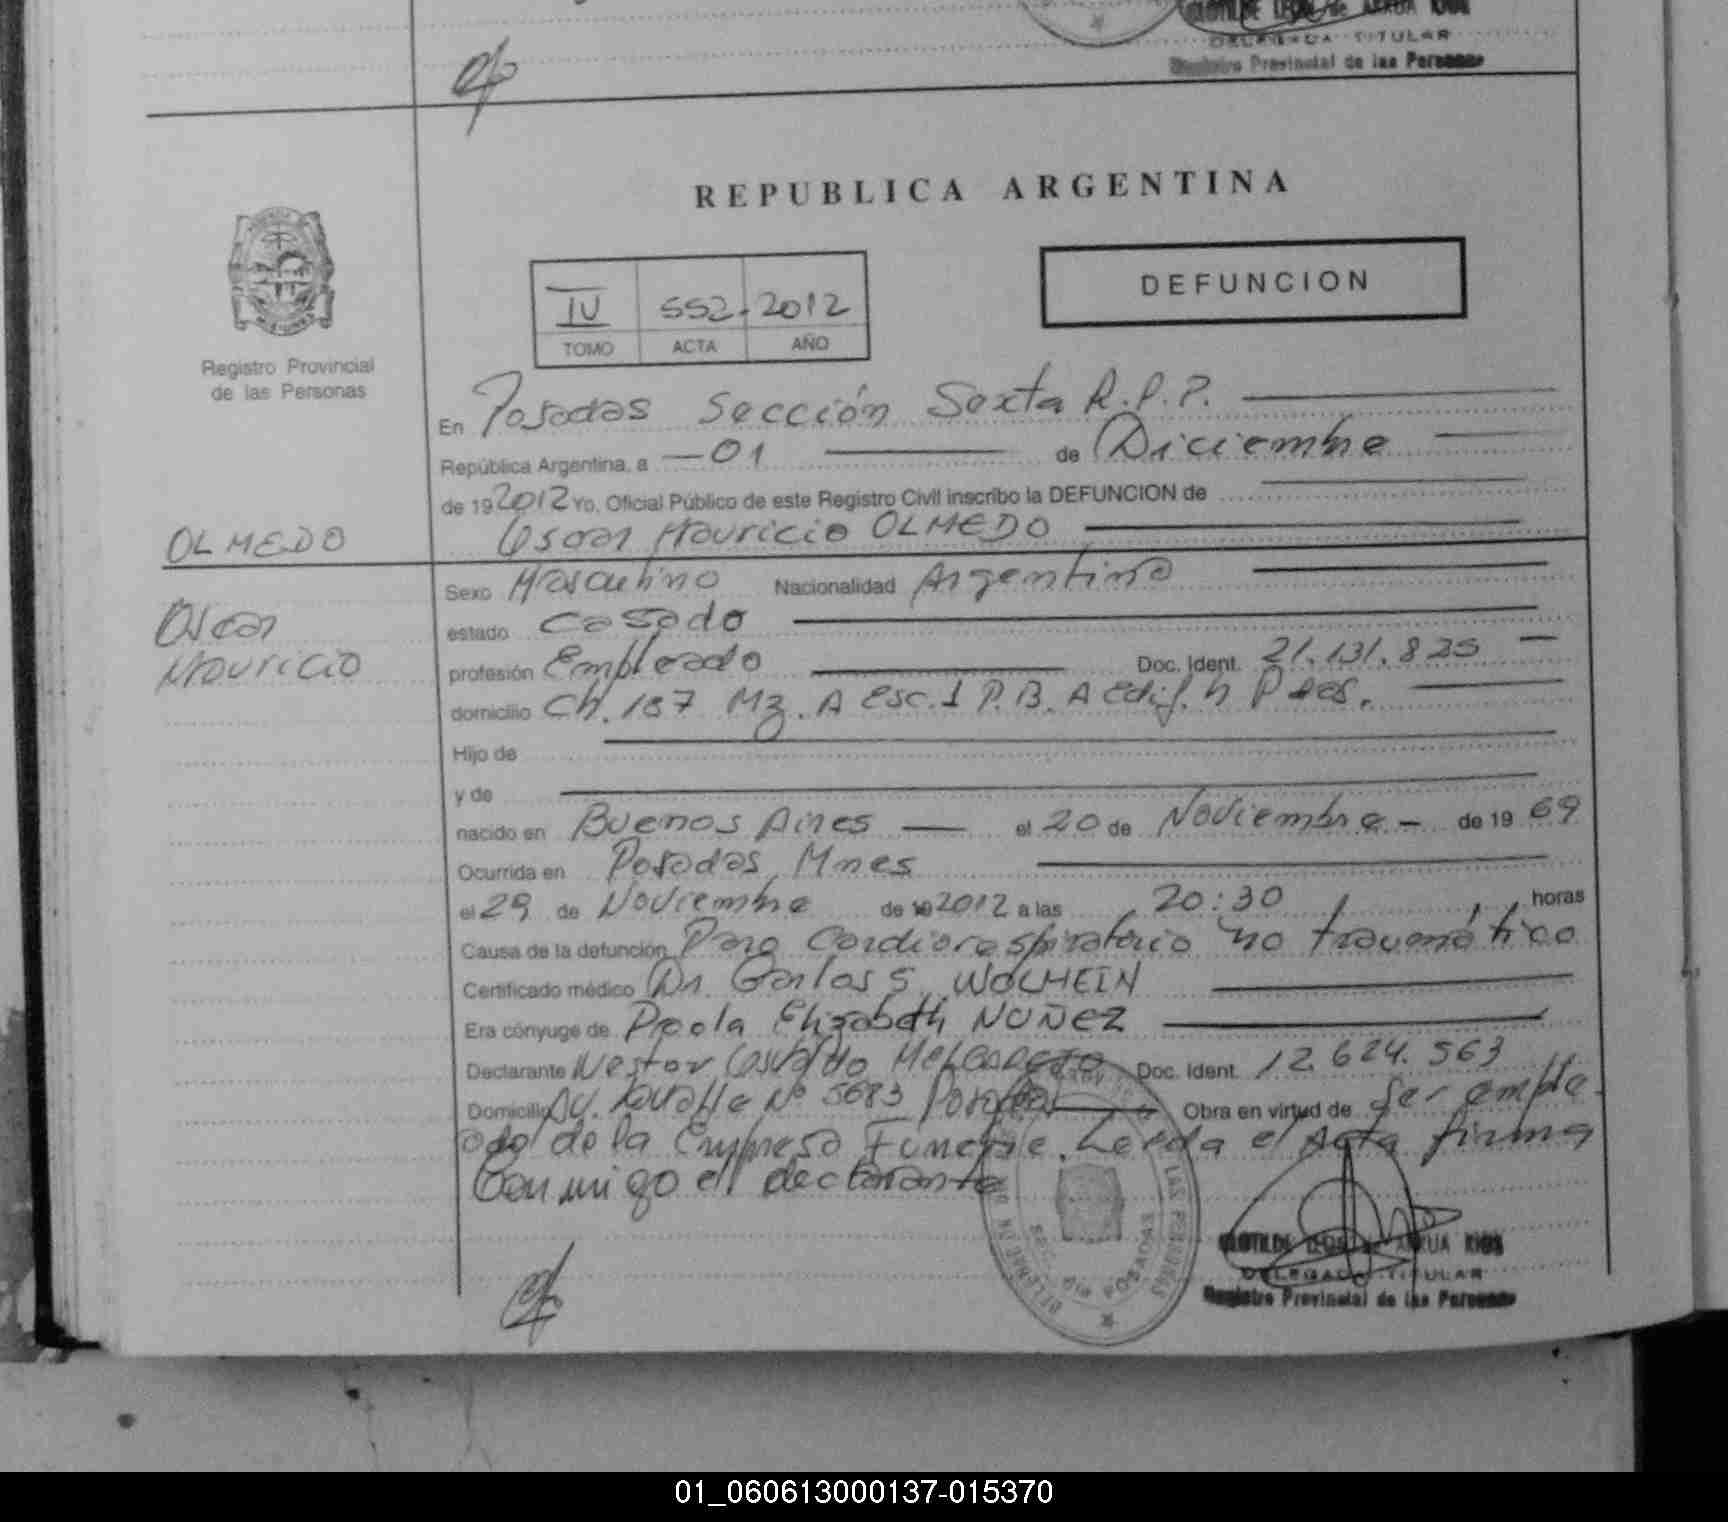 CLOTILDE LEON de ARRUA RIOS
DELEGADA TITULAR
Registro Provincial de las Personas
REPUBLICA ARGENTINA
IV 552 - 2012
TOMO ACTA AÑO
DEFUNCION
Registro Provincial
de las Personas
En Posadas Sección Sexta R.P.P.
República Argentina, a 01 de Diciembre
de 19 2012 Yo, Oficial Público de este Registro Civil inscribo la DEFUNCION de
OLMEDO
Oscar Mauricio OLMEDO
Oscar
Mauricio
Sexo Masculino Nacionalidad Argentina
estado Casado
profesión Empleado Doc. Ident. 21.131.825
domicilio Ch. 187 Mz. A esc. 1 P.B. A edif. h Pdas.
Hijo de
y de
nacido en Buenos Aires el 20 de Noviembre - de 19 69
Ocurrida en Posadas, Mnes
el 29 de Noviembre de 19 2012 a las 20:30 horas
Causa de la defunción Paro Cardiorespiratorio no traumático
Certificado médico Dr. Carlos S. WOLHEIN
Era cónyuge de Paola Elizabeth NUÑEZ
Declarante Nestor Osvaldo Doc. Ident. 12.624.563
Domicilio Av. Lavalle Nº 5683 Posadas Obra en virtud de Ser emplea-
do de la Empresa Funebre. Leída el Acta firma
Conmigo el declarante
LAS PERSONAS
SECC. 6ta POSADAS
CLOTILDE LEON de ARRUA RIOS
DELEGADA TITULAR
Registro Provincial de las Personas
01_060613000137-015370